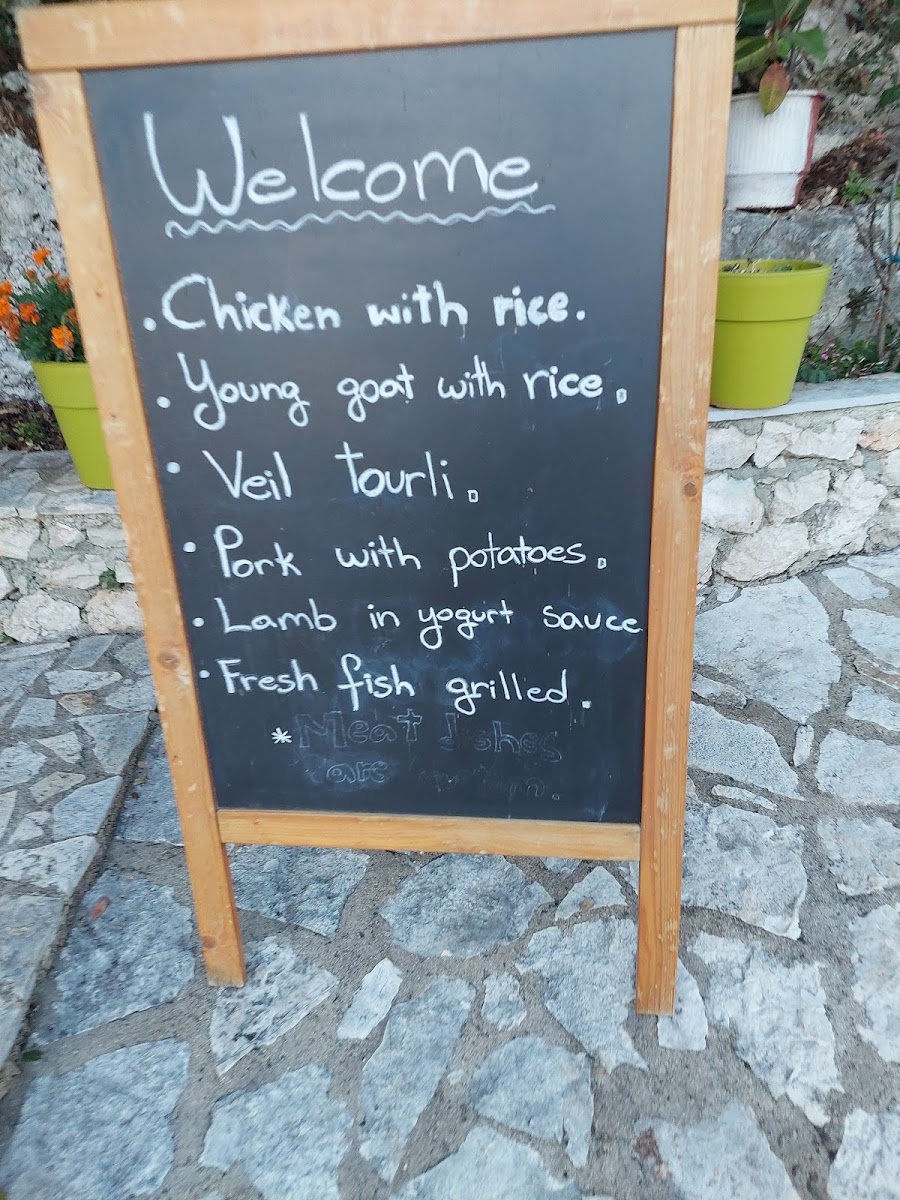 Welcome
• Chicken with rice.
• Young goat with rice.
• Veil tourli.
• Pork with potatoes.
• Lamb in yogurt sauce
• Fresh fish grilled.
* Meat dishes
are